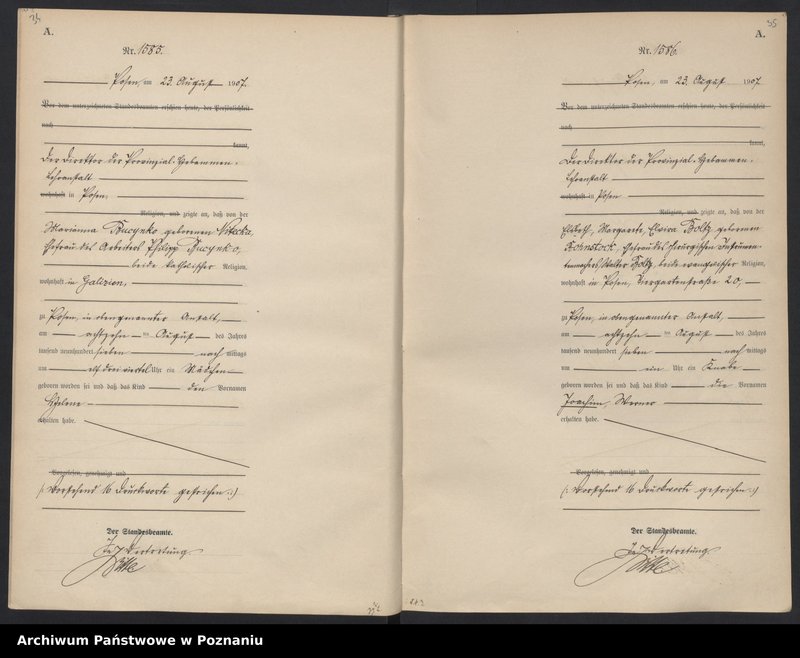 A.
Nr. 1585.
Posen, am 23. August 1907.
Vor dem unterzeichneten Standesbeamten erschien heute, der Persönlichkeit
nach
kannt,
Der Direktor der Provinzial-Hebammen-
Lehranstalt
wohnhaft in Posen,
Religion, und zeigte an, daß von der
Marianna geborenen
Ehefrau des Arbeiters Philipp
beide katholischer Religion,
wohnhaft in Galizien,
zu Posen, in obengenannter Anstalt,
am achtzehn ten August des Jahres
tausend neunhundert sieben nach mittags
um elf dreiviertel Uhr ein Mädchen
geboren worden sei und daß das Kind den Vornamen
Helene
erhalten habe.
Vorgelesen, genehmigt und
(: Vorstehend 16 Druckworte gestrichen :)
Der Standesbeamte.
In Vertretung
A.
55
Nr. 1586.
Posen, am 23. August 1907
Vor dem unterzeichneten Standesbeamten erschien heute, der Persönlichkeit
nach
kannt,
Der Direktor der Provinzial-Hebammen-
Lehranstalt
wohnhaft in Posen
Religion, und zeigte an, daß von der
Elsbeth, Margarete, Elvira Boltz geborenen
Bohnstock, Ehefrau des chirurgischen Instrumen-
tenmachers Walter Boltz, beide evangelischer Religion,
wohnhaft in Posen, Tiergartenstraße 20,
zu Posen, in obengenannter Anstalt,
am achtzehn ten August des Jahres
tausend neunhundert sieben nach mittags
um ein Uhr ein Knabe
geboren worden sei und daß das Kind die Vornamen
Joachim, Werner
erhalten habe.
Vorgelesen, genehmigt und
(: Vorstehend 16 Druckworte gestrichen :)
Der Standesbeamte.
In Vertretung
Archiwum Państwowe w Poznaniu